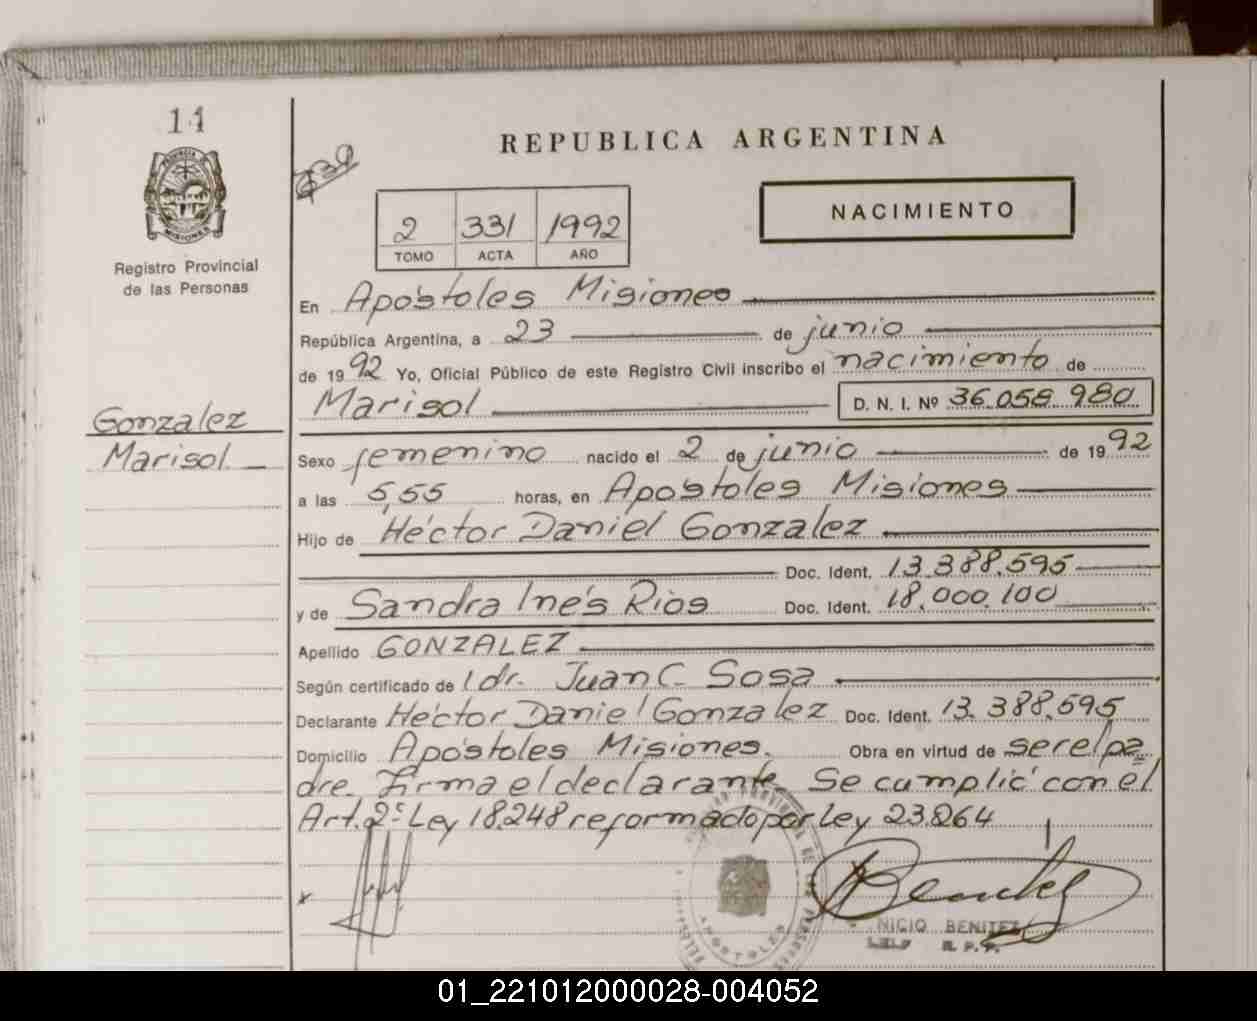 11
REPUBLICA ARGENTINA
PROVINCIA DE
MISIONES
2 331 1992
TOMO ACTA AÑO
NACIMIENTO
Registro Provincial
de las Personas
En Apóstoles Misiones
República Argentina, a 23 de junio
de 1992 Yo, Oficial Público de este Registro Civil inscribo el nacimiento de
Marisol D. N. I. Nº 36.058.980
Gonzalez
Marisol
Sexo femenino nacido el 2 de junio de 1992
a las 5,55 horas, en Apóstoles Misiones
Hijo de Héctor Daniel Gonzalez
Doc. Ident. 13.388.595
y de Sandra Inés Rios Doc. Ident. 18.000.100
Apellido GONZALEZ
Según certificado de l dr. Juan C. Sosa
Declarante Héctor Daniel Gonzalez Doc. Ident. 13.388.595
Domicilio Apóstoles Misiones. Obra en virtud de ser el pa
dre. Firma el declarante. Se cumplió con el
Art. 2º Ley 18.248 reformado por Ley 23.264
Benitez
NICIO BENITEZ
R. P. P.
APOSTOLES
01_221012000028-004052